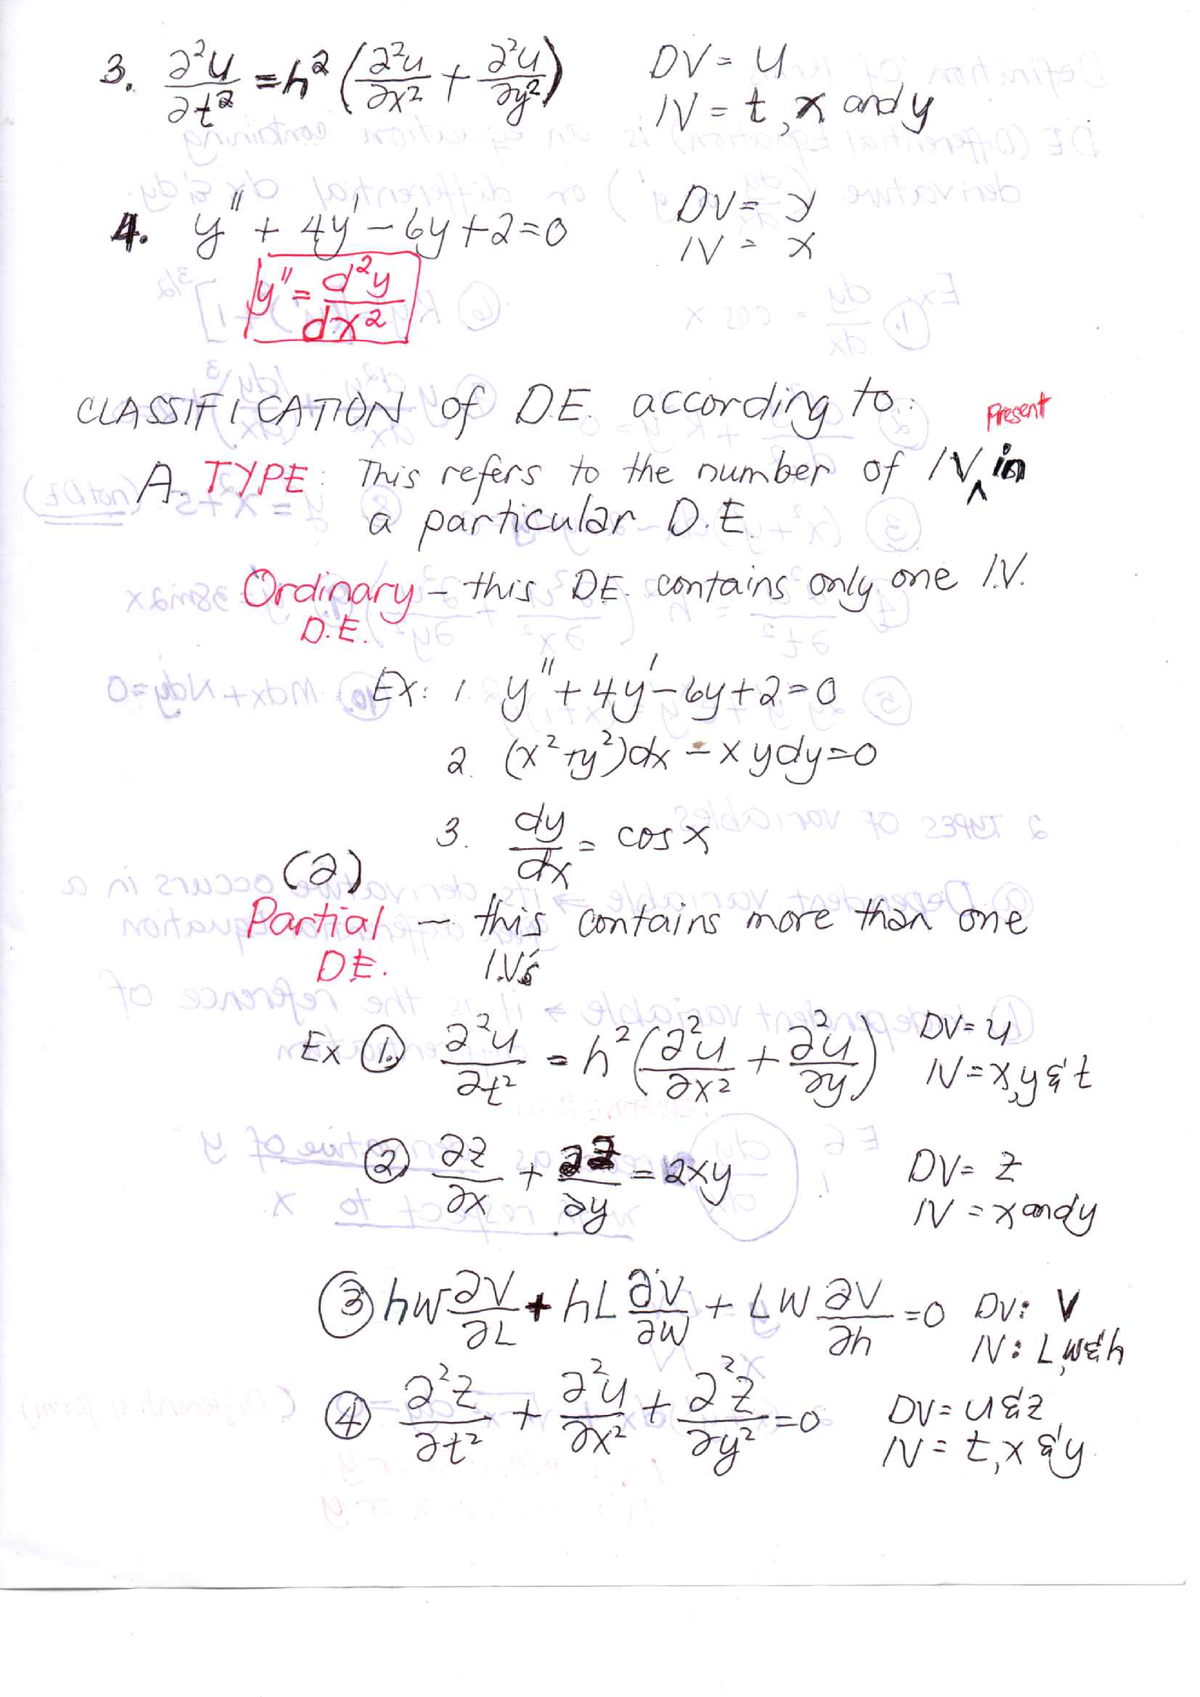 3. ∂²u/∂t² = h² (∂²u/∂x² + ∂²u/∂y²) DV = u
IV = t, x and y
4. y'' + 4y' - 6y + 2 = 0 DV = y
IV = x
y'' = d²y/dx²
CLASSIFICATION of D.E. according to:
Present
A. TYPE: This refers to the number of IV ^ in
a particular D.E.
Ordinary - this DE. contains only one I.V.
D.E.
Ex: 1 y'' + 4y' - 6y + 2 = 0
2. (x² + y²)dx - xydy = 0
3. dy/dx = cos x
(2)
Partial - this contains more than one
D.E. I.V's
Ex ① ∂²u/∂t² = h² (∂²u/∂x² + ∂²u/∂y) DV = u
IV = x, y & t
② ∂z/∂x + ∂z/∂y = 2xy DV = z
IV = x and y
③ hW ∂V/∂L + hL ∂V/∂W + LW ∂V/∂h = 0 DV: V
IV: L, W & h
④ ∂²z/∂t² + ∂²u/∂x² + ∂²z/∂y² = 0 DV = u & z
IV = t, x & y